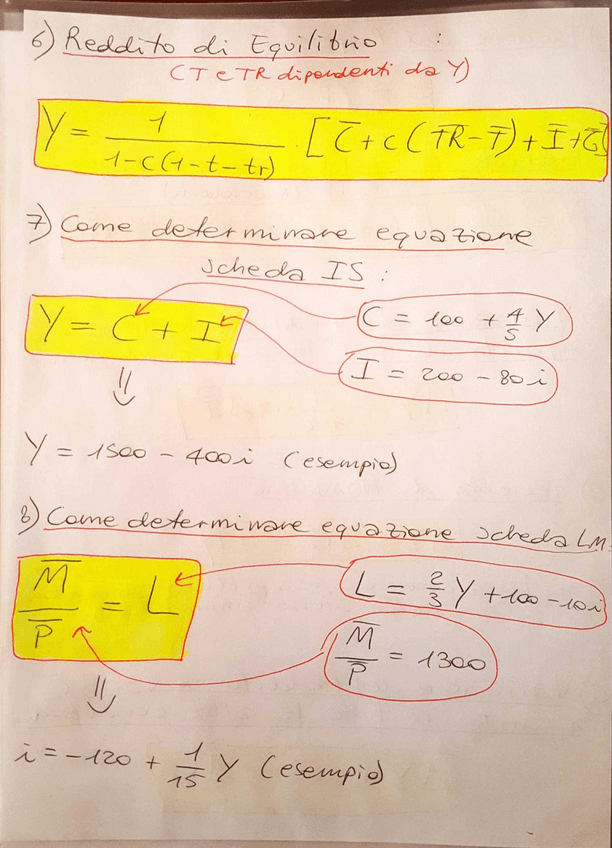 6) Reddito di Equilibrio :
(T e TR dipendenti da Y)
Y = 1 / 1-c(1-t-tr) · [C̅ + c(T̅R̅ - T̅) + I̅ + G̅]
7) Come determinare equazione
scheda IS :
Y = C + I
C = 100 + 4/5 Y
I = 200 - 80i
⇓
Y = 1500 - 400i (esempio)
8) Come determinare equazione scheda LM:
M̅/P̅ = L
L = 2/3 Y + 100 - 10i
M̅/P̅ = 1300
⇓
i = -120 + 1/15 Y (esempio)